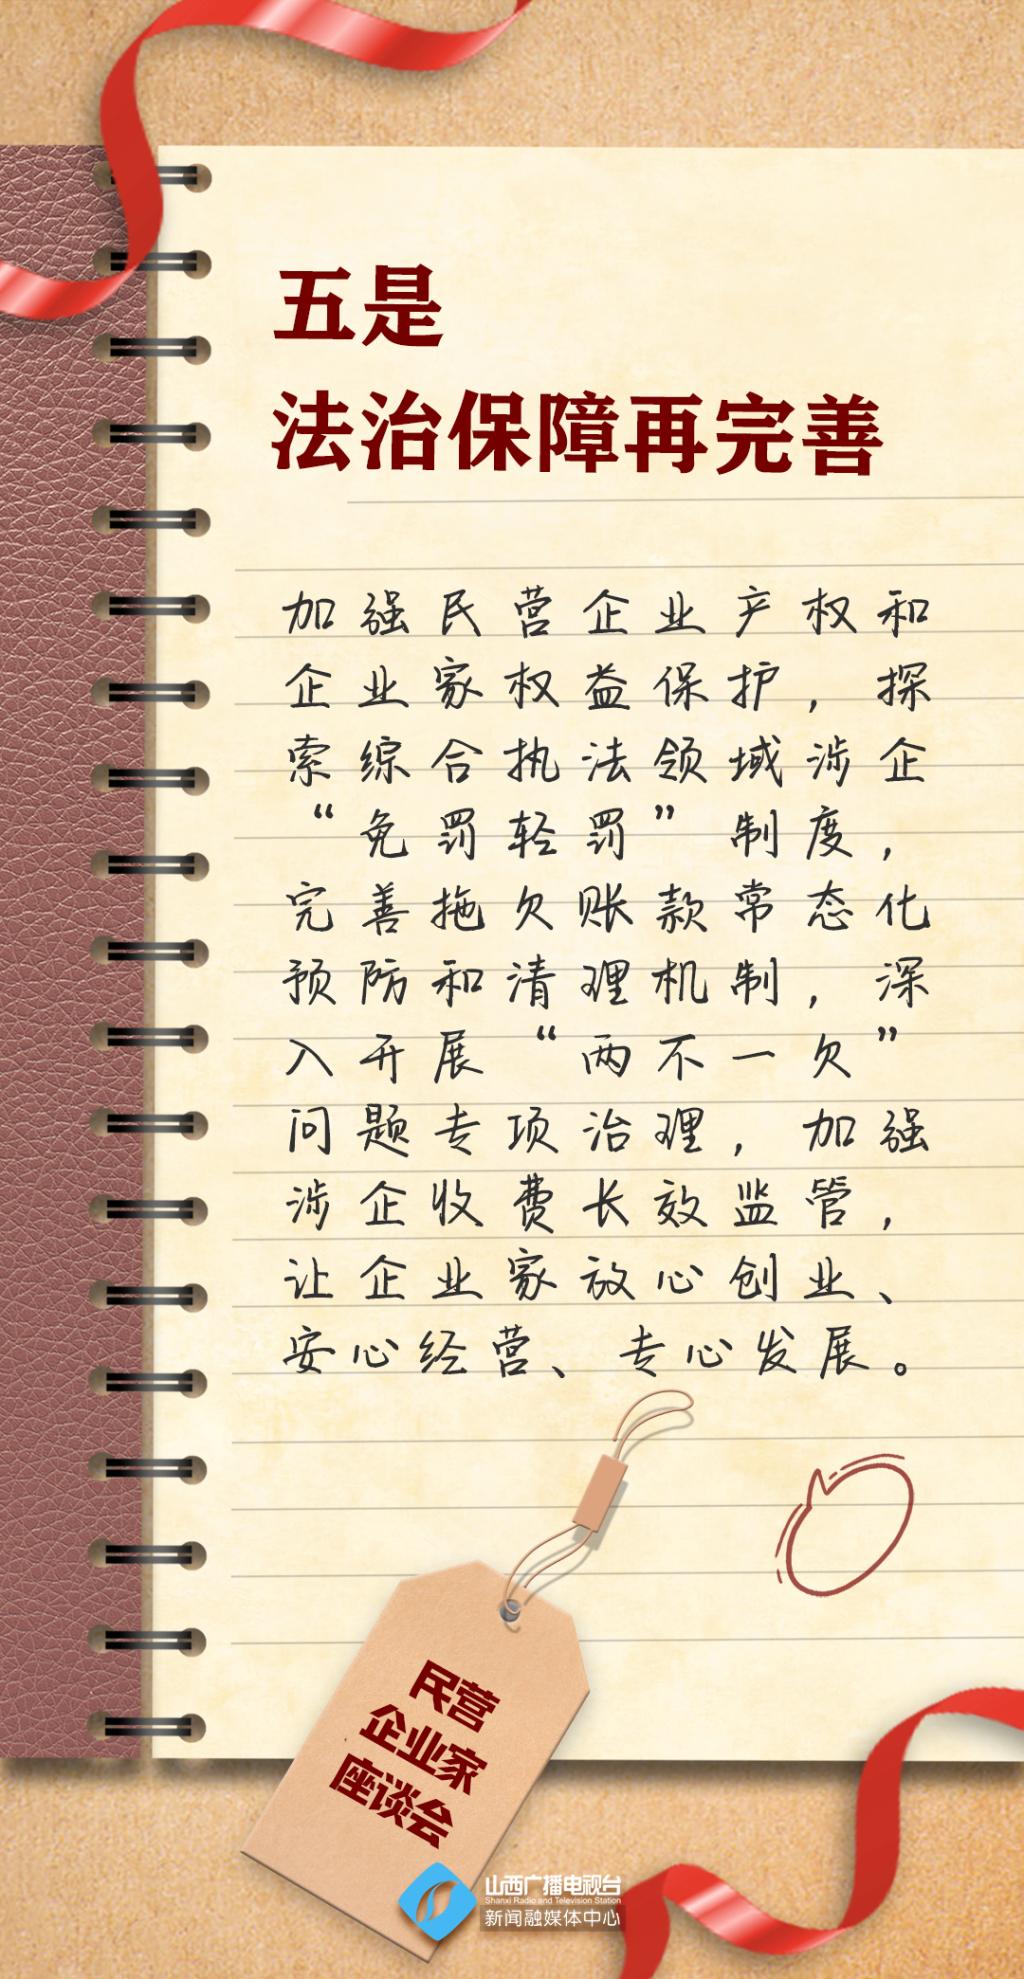 五是
法治保障再完善
加强民营企业产权和
企业家权益保护，探
索综合执法领域涉企
“免罚轻罚”制度，
完善拖欠账款常态化
预防和清理机制，深
入开展“两不一欠”
问题专项治理，加强
涉企收费长效监管，
让企业家放心创业、
安心经营、专心发展。
民营
企业家
座谈会
山西广播电视台
Shanxi Radio and Television Station
新闻融媒体中心